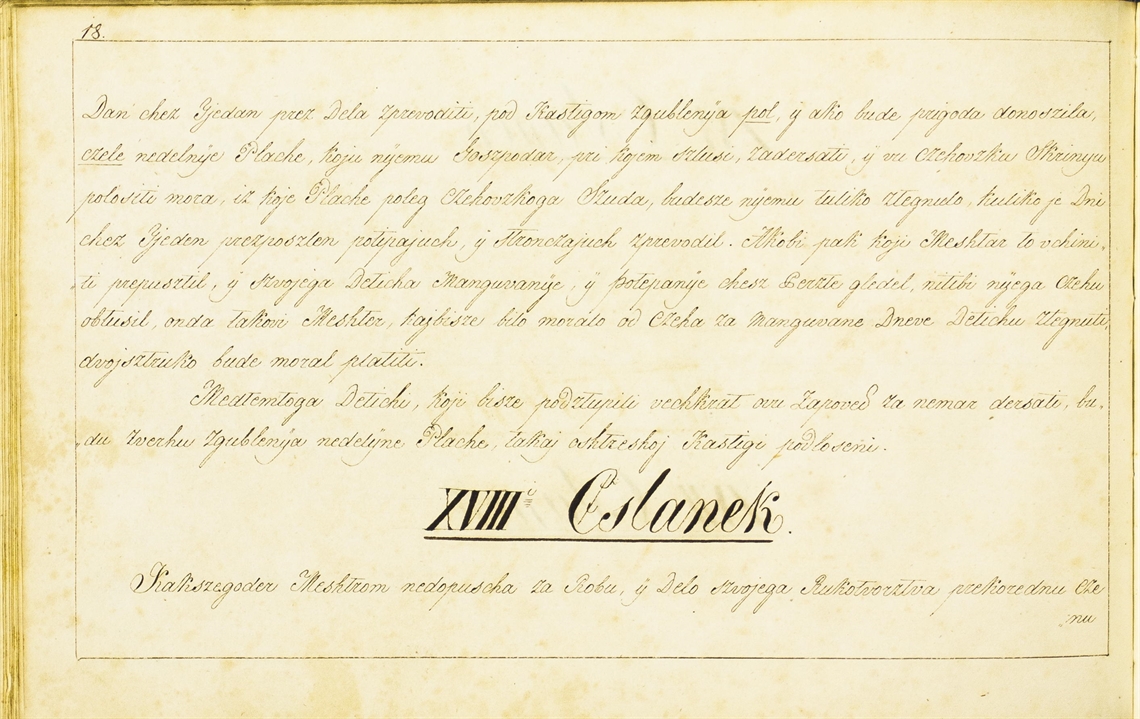 18.
Dan chez Tjedan prez Dela zprevoditi, pod Kastigom zgublenÿa pol, ÿ ako bude prigoda donoszila,
czele nedelnÿe Plache, koju nÿemu Goszpodar, pri kojem szlusi, zadersati, ÿ vu Czehovzku Skrinyu
polositi mora, iz koje Plache poleg Czehovzkoga Szuda, budesze nÿemu tuliko ztegnulo, kuliko je Dni
chez Tjeden prezposzlen potepajuch, ÿ Stronczajuch zprevodil. Akobi pak koji Meshtar to vchini-
ti prepustil, ÿ szvojega Deticha Manguvanÿe, ÿ potepanÿe chesz Perzte gledel, nitibi nÿega Czehu
obtusil, onda takovi Meshter, kajbisze bilo moralo od Czeha za manguvane Dneve Detichu ztegnuti,
dvojsztruko bude moral platiti.
Medtemtoga Detichi, koji bisze podztupili vechkrat ovu Zapoved za nemar dersati, bu-
du zverhu zgublenÿa nedelÿne Plache, takaj oshtreskoj Kastigi podloseni.
XVIII Cslanek.
Kakszegoder Meshtrom nedopuscha za Robu, ÿ Delo szvojega Rukotvorztva prekorednu Cze
nu